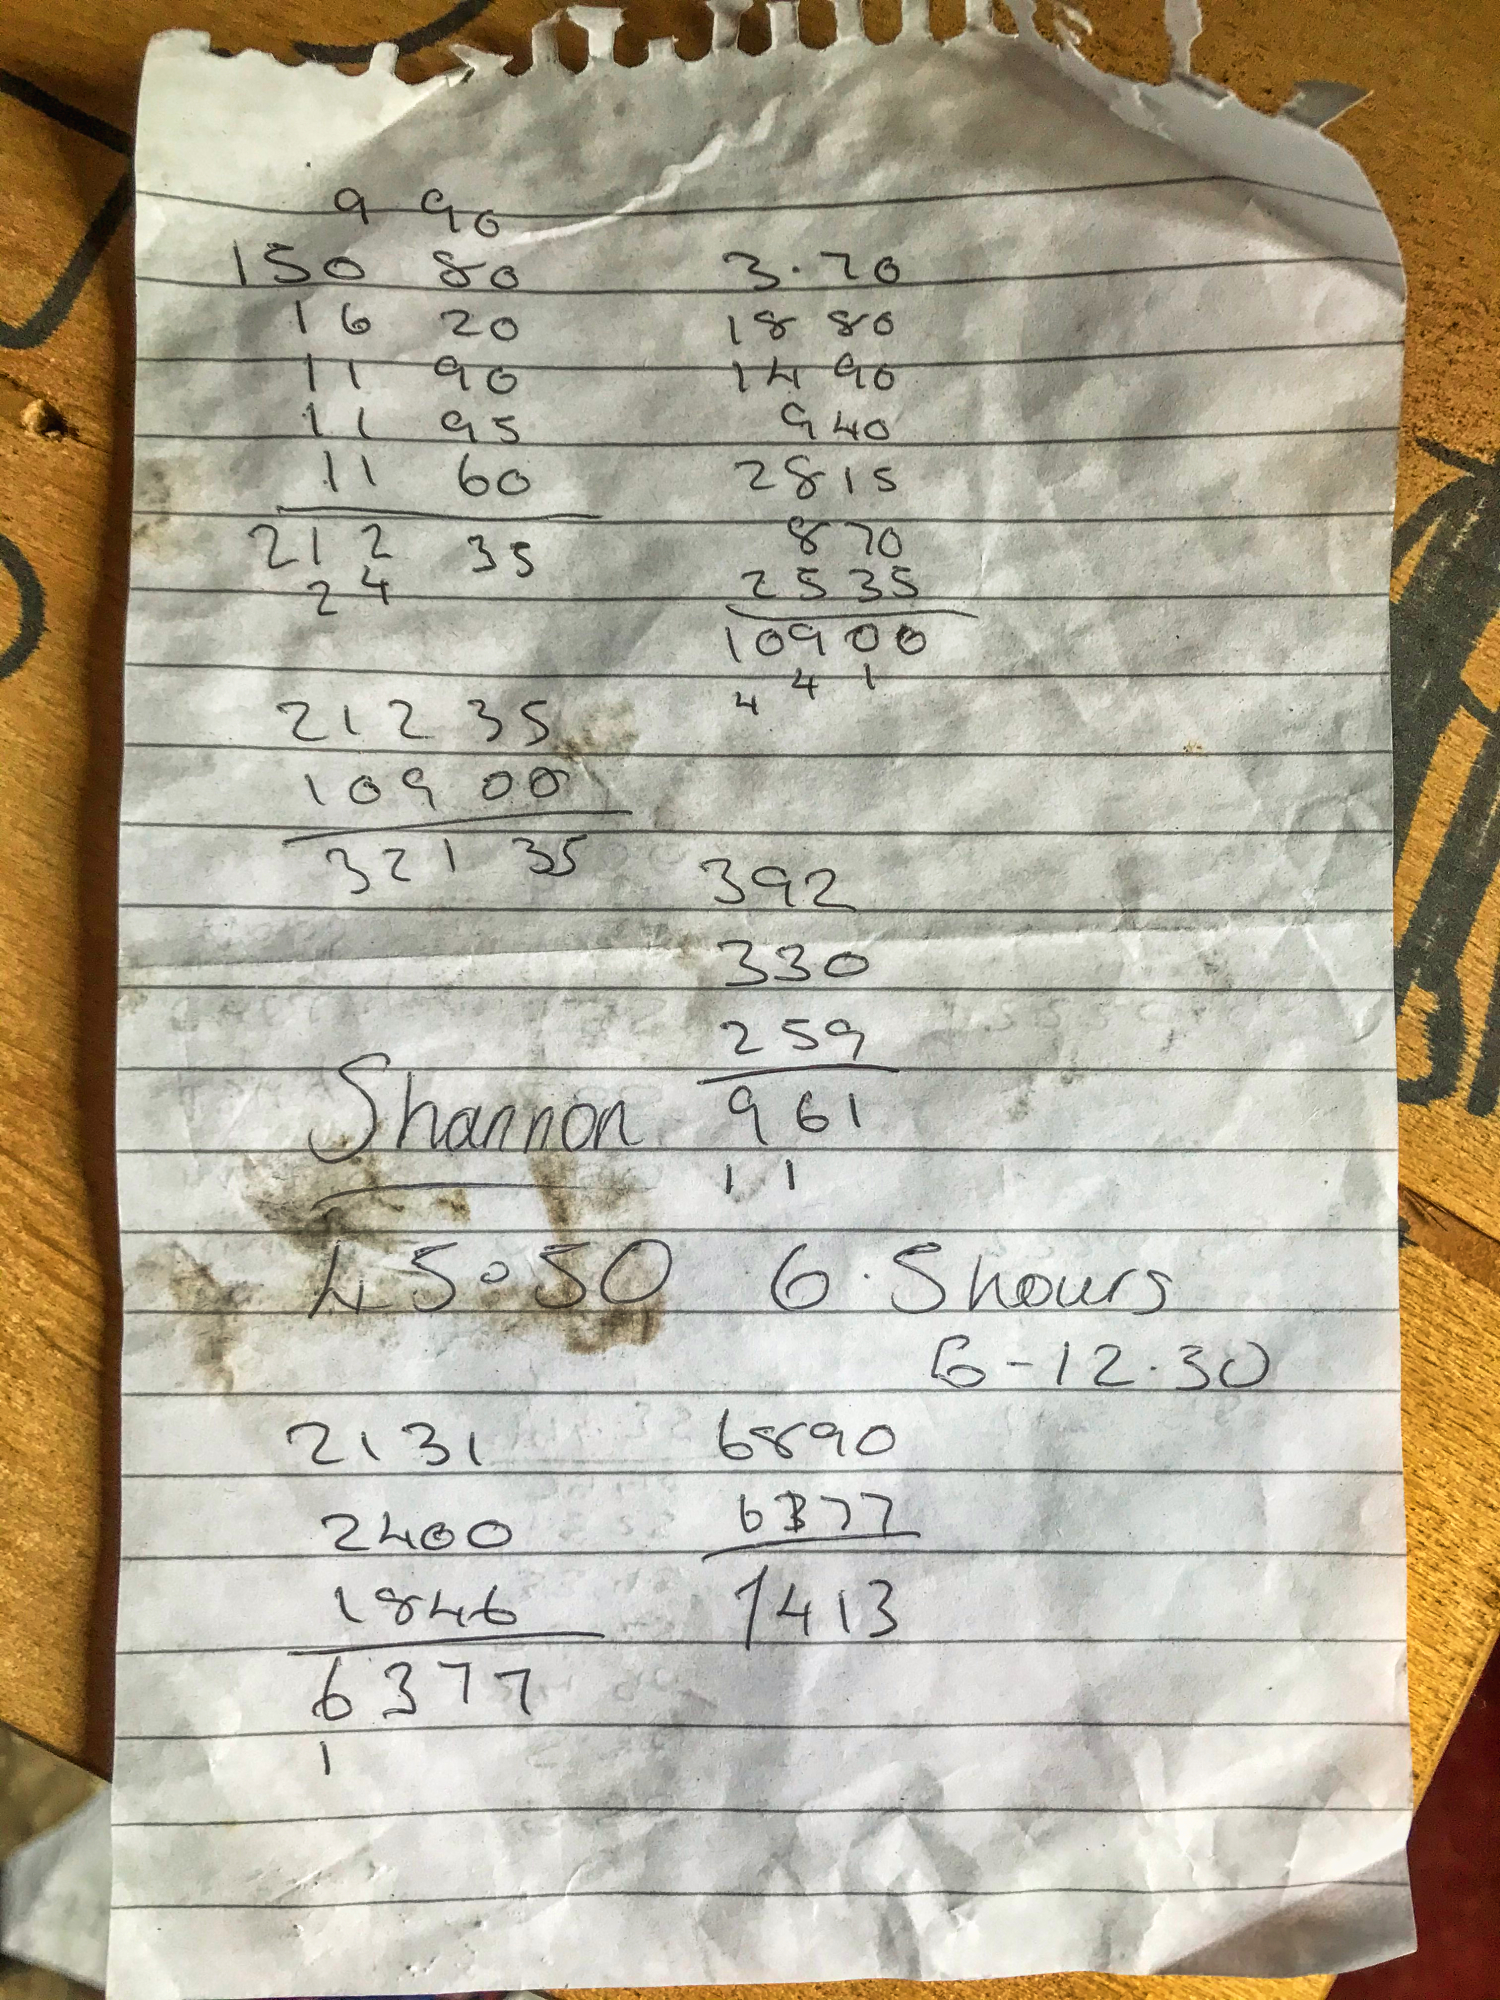 9 90
150 80
16 20
11 90
11 95
11 60
212 35
2 4
3.70
18 80
14 90
9 40
28 15
8 70
25 35
109 00
4 4 1
212 35
109 00
321 35
392
330
259
961
1 1
Shannon
45.50 6.5 hours
6-12.30
2131
2400
1846
6377
1
6890
6377
1413